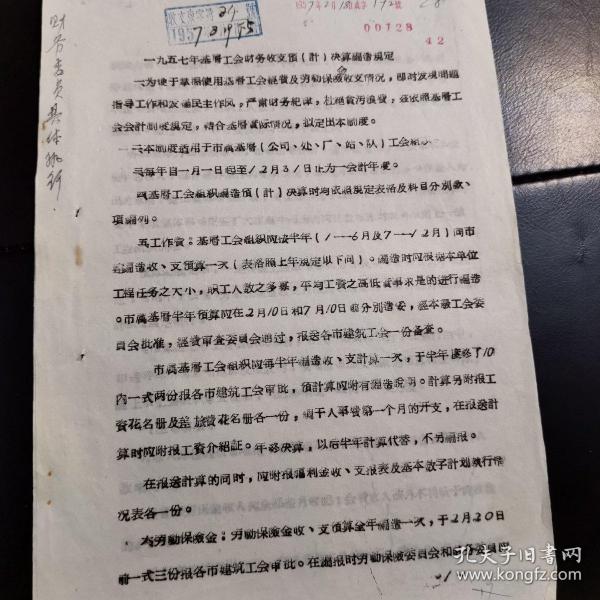 1957年2月
00128
42
财务委员具体执行
一九五七年基层工会财务收支预(計)决算編造規定
一为便于掌握使用基层工会經費及劳动保險收支情况,即时发現問題
指导工作和发揚民主作风,严肃財务紀律,杜絕貪污浪費,玆依照基层工
会会計制度規定,結合基层实际情况,拟定出本制度。
二本制度适用于市属基层(公司、处、厂、站、队)工会組
三每年自一月一日起至12月31日止为一会計年度。
四基层工会組织編造預(計)决算时均依照規定表格及科目分別款、
項編列。
五工作費:基层工会組织应按半年(1—6月及7—12月)向市
編造收、支預算一次(表格照上年規定以下同)。編造时应根据本单位
工程任务之大小,职工人数之多寡,平均工資之高低实事求是的进行編造
。市属基层半年預算应在2月10日和7月10日前分別造妥,經本級工会委
員会批准,經費审查委員会通过,报送各市建筑工会一份备查。
市属基层工会組织应每半年編造收、支計算一次,于半年度終了10
內一式两份报各市建筑工会审批,預計算应附有編造說明。計算另附报工
資花名册及差旅費花名册各一份,調干人事費第一个月的开支,在报送計
算时应附报工資介紹証。年終决算,以后半年計算代替,不另編报。
在报送計算的同时,应附报福利金收、支报表及基本数字計划执行情
况表各一份。
六劳动保險金:劳动保險金收、支預算全年編造一次,于2月20日
前一式三份报各市建筑工会审批。在編报时劳动保險委員会和財务委員
孔夫子旧书网
www.kongfz.com